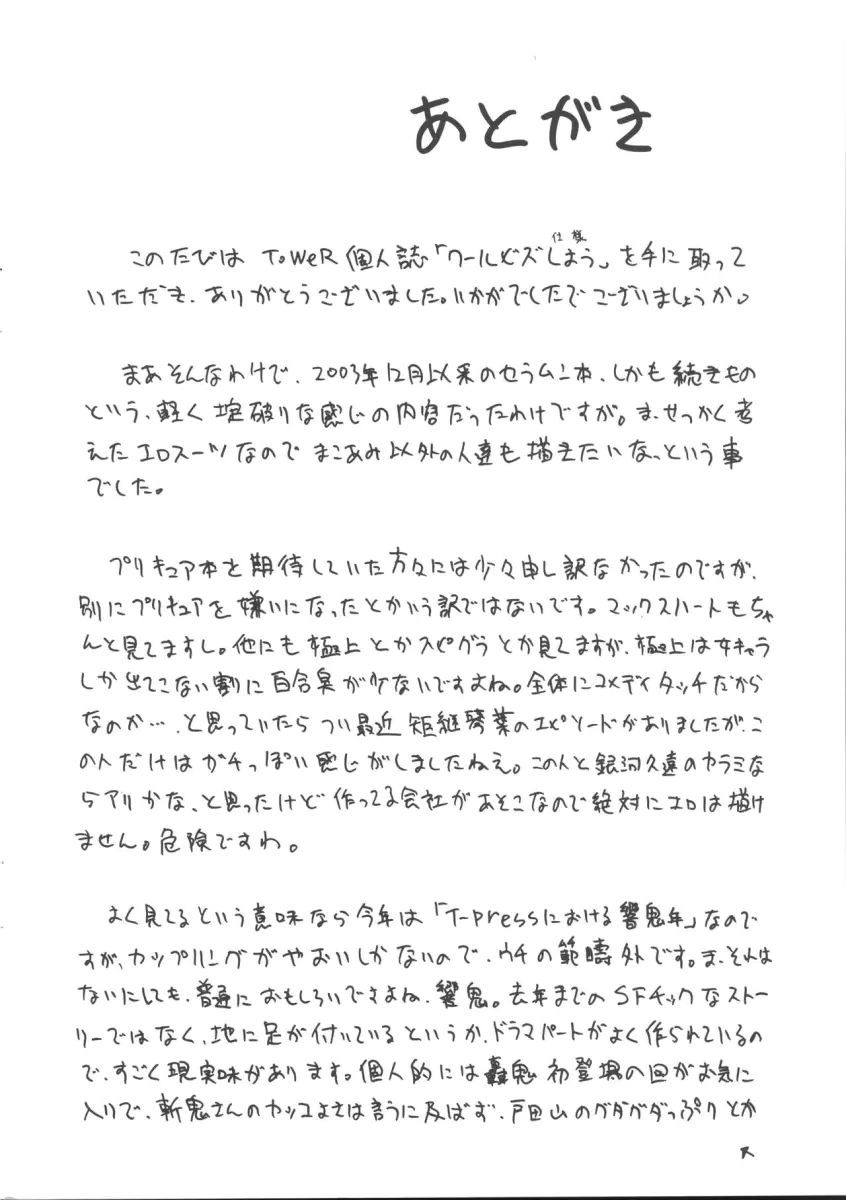 あとがき
仕様
このたびは ToWeR個人誌「クールビズしよう」を手に取って
いただき、ありがとうございました。いかがでしたでございましょうか。
まあそんなわけで、2003年12月以来のセラムン本、しかも続きもの
という、軽く掟破りな感じの内容だったわけですが。ま、せっかく考
えたエロスーツなのでまこあみ以外の人達も描きたいなっという事
でした。
プリキュア本を期待していた方々には少々申し訳なかったのですが、
別にプリキュアを嫌いになったとかいう訳ではないです。マックスハートもちゃ
んと見てますし。他にも極上とかスピグラとか見てますが、極上は女キャラ
しか出てこない割に百合臭が少ないですよね。全体にコメディタッチだから
なのか…、と思っていたらつい最近 矩継琴葉のエピソードがありましたが、こ
の人だけはガチっぽい感じがしましたねえ。この人と銀河久遠のカラミな
らアリかな、と思ったけど作ってる会社があそこなので絶対にエロは描け
ません。危険ですわ。
よく見てるという意味なら今年は「T-pressにおける響鬼年」なので
すが、カップリングがやおいしかないので、ウチの範疇外です。ま、それは
ないにしても、普通におもしろいですよね、響鬼。去年までのSFチックなストー
リーではなく、地に足が付いているというか、ドラマパートがよく作られているの
で、すごく現実味があります。個人的には轟鬼初登場の回がお気に
入りで、斬鬼さんのカッコよさは言うに及ばず、戸田山のグダグダっぷりとか